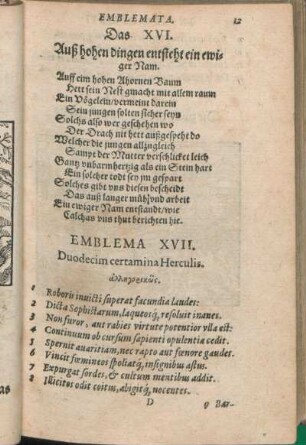 EMBLEMATA. 12
Das XVI.
Auß hohen dingen entsteht ein ewi-
ger Nam.
Auff eim hohen Ahornen Baum
Hett sein Nest gmacht mit allem raum
Ein Vögelein/vermeint darein
Sein jungen solten sicher seyn
Solchs also wer geschehen wo
Der Drach nit hett außgespeht do
Welcher die jungen allzugleich
Sampt der Mutter verschlücket leich
Gantz vnbarmhertzig als ein Stein hart
Ein solcher todt sey jm gespart
Solches gibt vns diesen bescheidt
Das auß langer müh vnd arbeit
Ein ewiger Nam entstande/wie
Calchas vns thut berichten hie.
EMBLEMA XVII.
Duodecim certamina Herculis.
ἀλληγορικῶς.
1 Roboris invicti superat facundia laudes:
2 Dicta Sophistarum, laqueosq́, resolvit inanes.
3 Non furor, aut rabies virtute potentior vlla est:
4 Continuum ob cursum sapienti opulentia cedit.
5 Spernit avaritiam, nec rapto aut fœnore gaudet.
6 Vincit fœmineos spoliatq́, insignibus astus.
7 Expurgat sordes, & cultum mentibus addit.
8 Illicitos odit coitus, abigitq́, nocentes.
D 9 Bar-